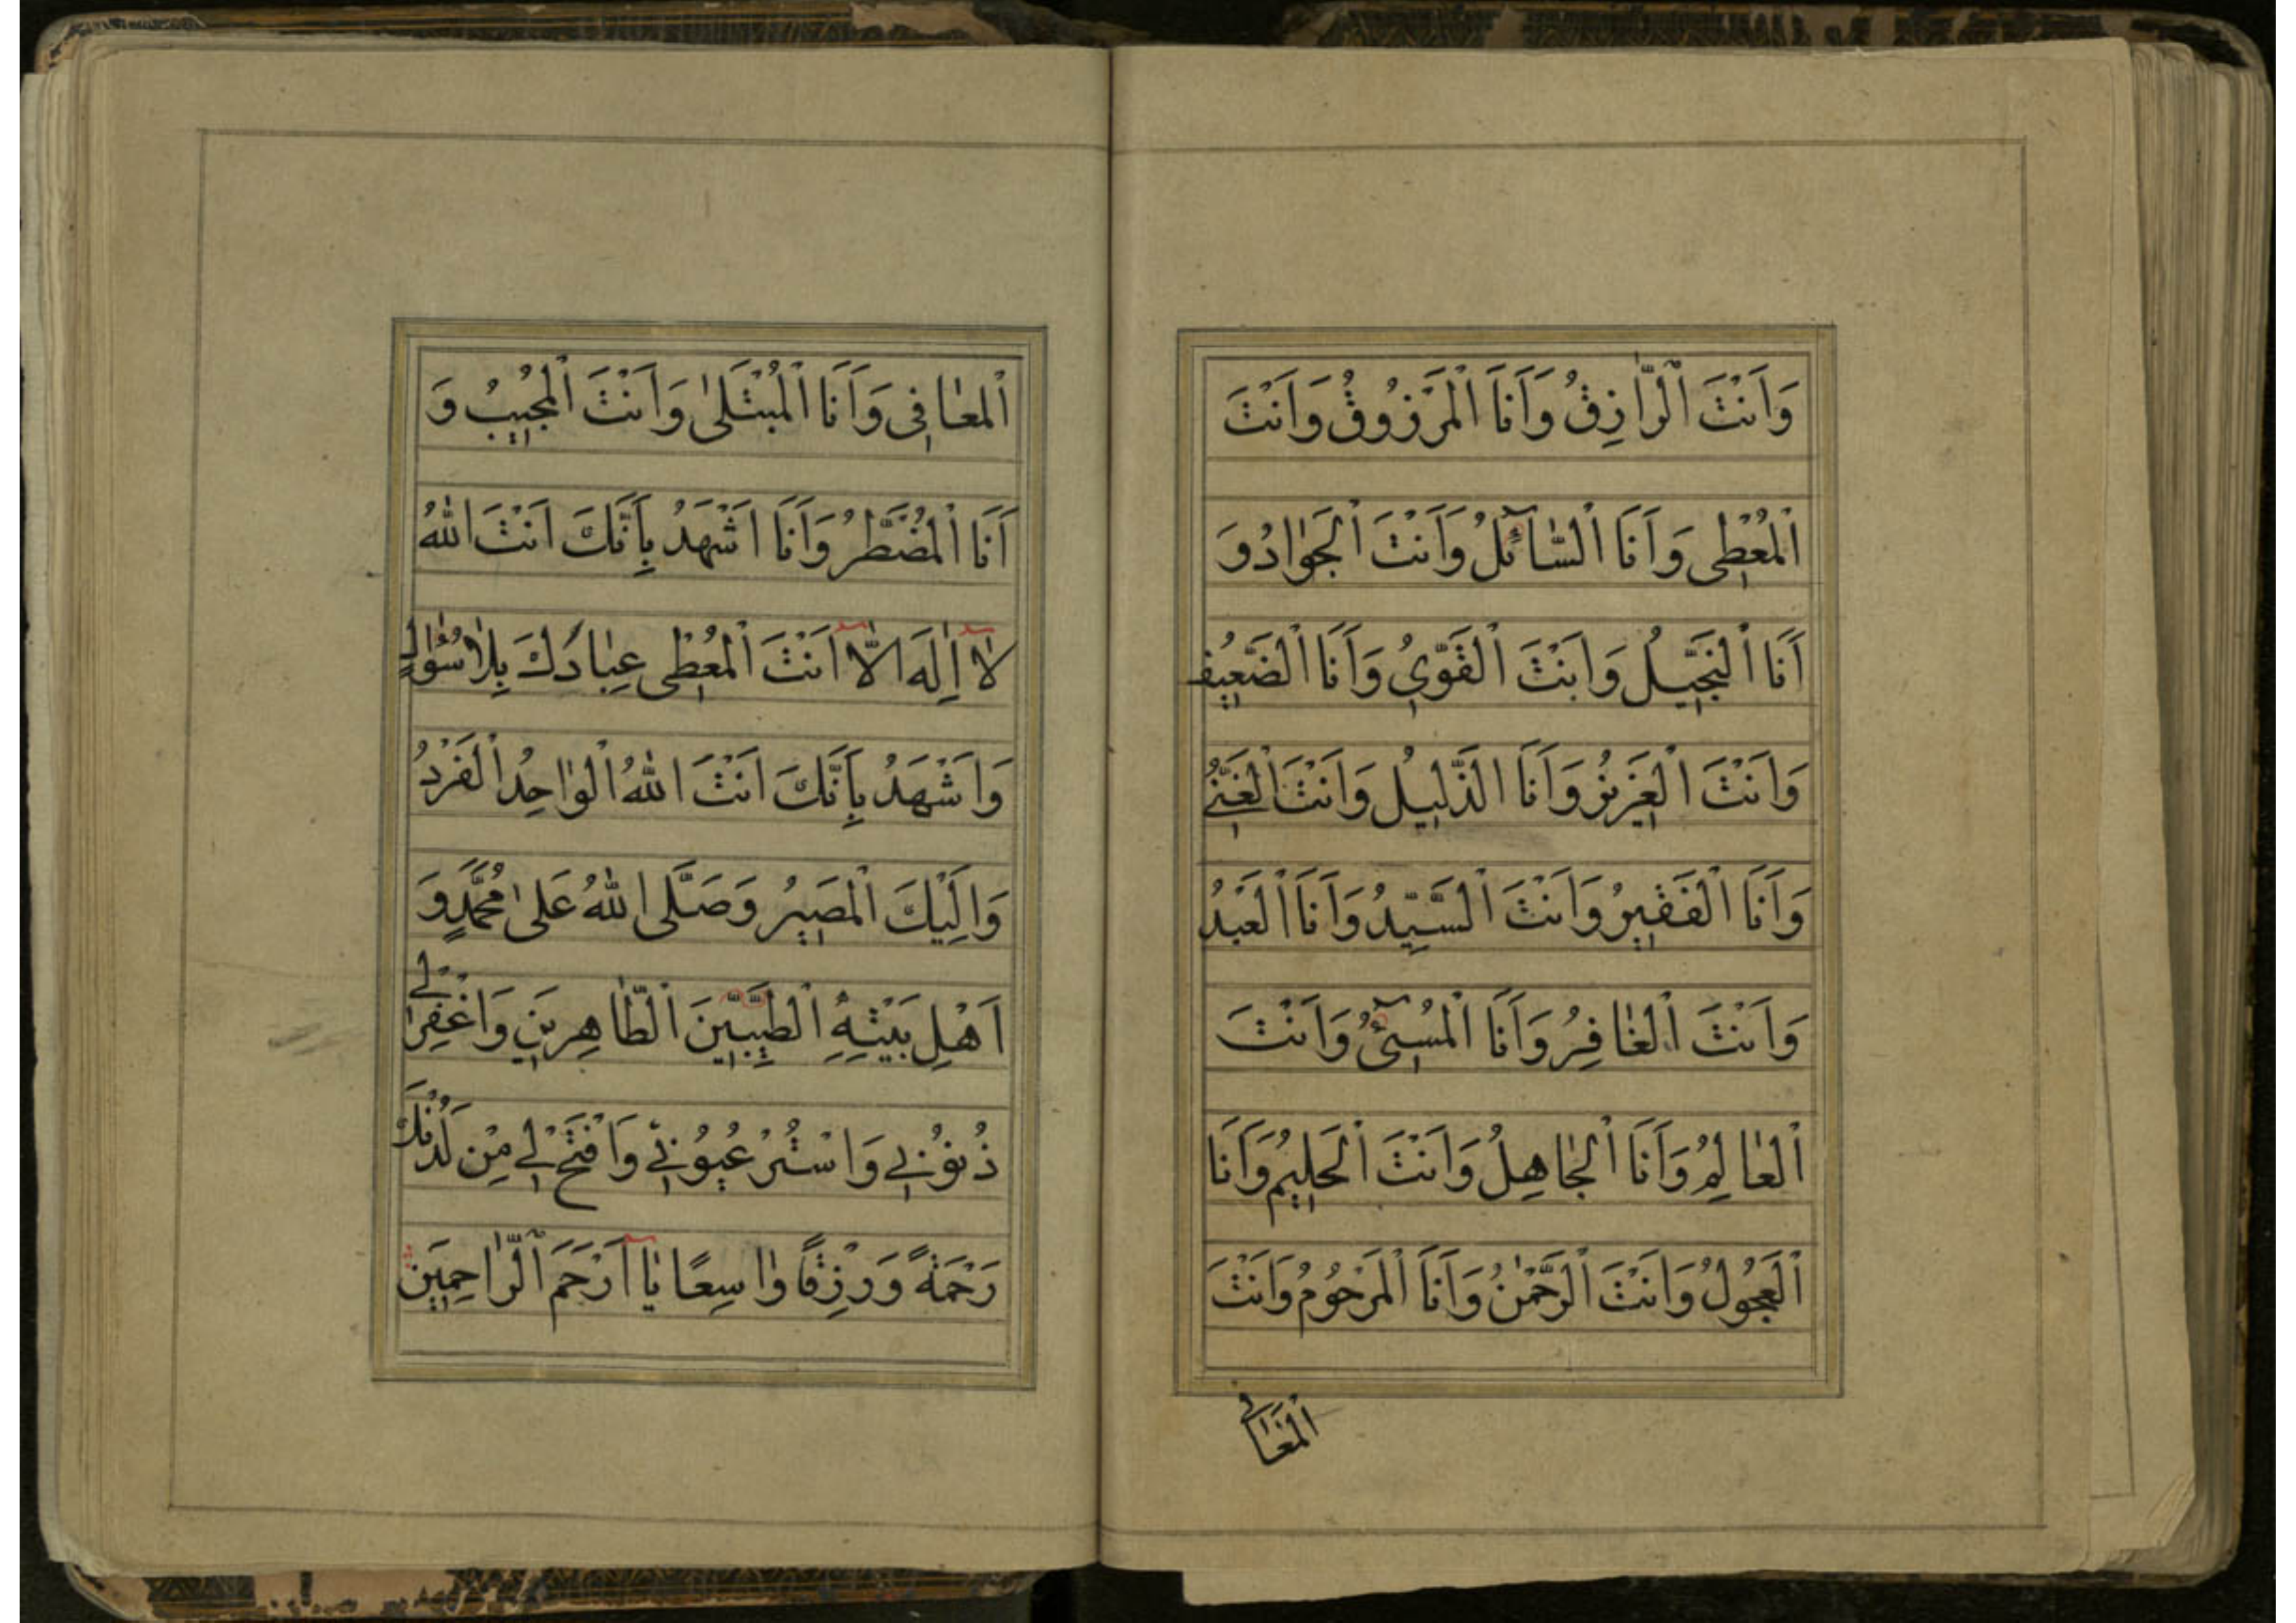 وَاَنْتَ الرّٰازِقُ وَاَنَا الْمَرْزُوقُ وَاَنْتَ
الْمُعْطِى وَاَنَا السّٰآئِلُ وَاَنْتَ الْجَوٰادُ وَ
اَنَا الْبَخِيلُ وَاَنْتَ الْقَوِّىُ وَاَنَا الضَّعِيفُ
وَاَنْتَ الْعَزِيزُ وَاَنَا الذَّلِيلُ وَاَنْتَ الْغَنِيُّ
وَاَنَا الْفَقِيرُ وَاَنْتَ السَّيِّدُ وَاَنَا الْعَبْدُ
وَاَنْتَ الْغٰافِرُ وَاَنَا الْمُسِىۤءُ وَاَنْتَ
الْعٰالِمُ وَاَنَا الْجٰاهِلُ وَاَنْتَ الْحَلِيمُ وَاَنَا
الْعَجُولُ وَاَنْتَ الرَّحْمٰنُ وَاَنَا الْمَرْحُومُ وَاَنْتَ
الْمُعٰافِى
الْمُعٰافِى وَاَنَا الْمُبْتَلىٰ وَاَنْتَ الْمُجِيبُ وَ
اَنَا الْمُضْطَّرُ وَاَنَا اَشْهَدُ بِاَنَّكَ اَنْتَ اللّٰهُ
لٰاۤ اِلٰهَ اِلّٰاۤ اَنْتَ الْمُعْطِى عِبٰادَكَ بِلٰا سُؤٰالٍ
وَاَشْهَدُ بِاَنَّكَ اَنْتَ اللّٰهُ الْوٰاحِدُ الْفَرْدُ
وَاِلَيْكَ الْمَصِيرُ وَصَلَّى اللّٰهُ عَلىٰ مُحَمَّدٍ وَ
اَهْلِ بَيْتِهِ الطَّيِّبِينَ الطّٰاهِرِينَ وَاغْفِرْ لِي
ذُنُوبِي وَاسْتُرْ عُيُوبِي وَافْتَحْ لِي مِنْ لَدُنْكَ
رَحْمَةً وَرِزْقًا وٰاسِعًا يٰاۤ اَرْحَمَ الرّٰاحِمِينَ